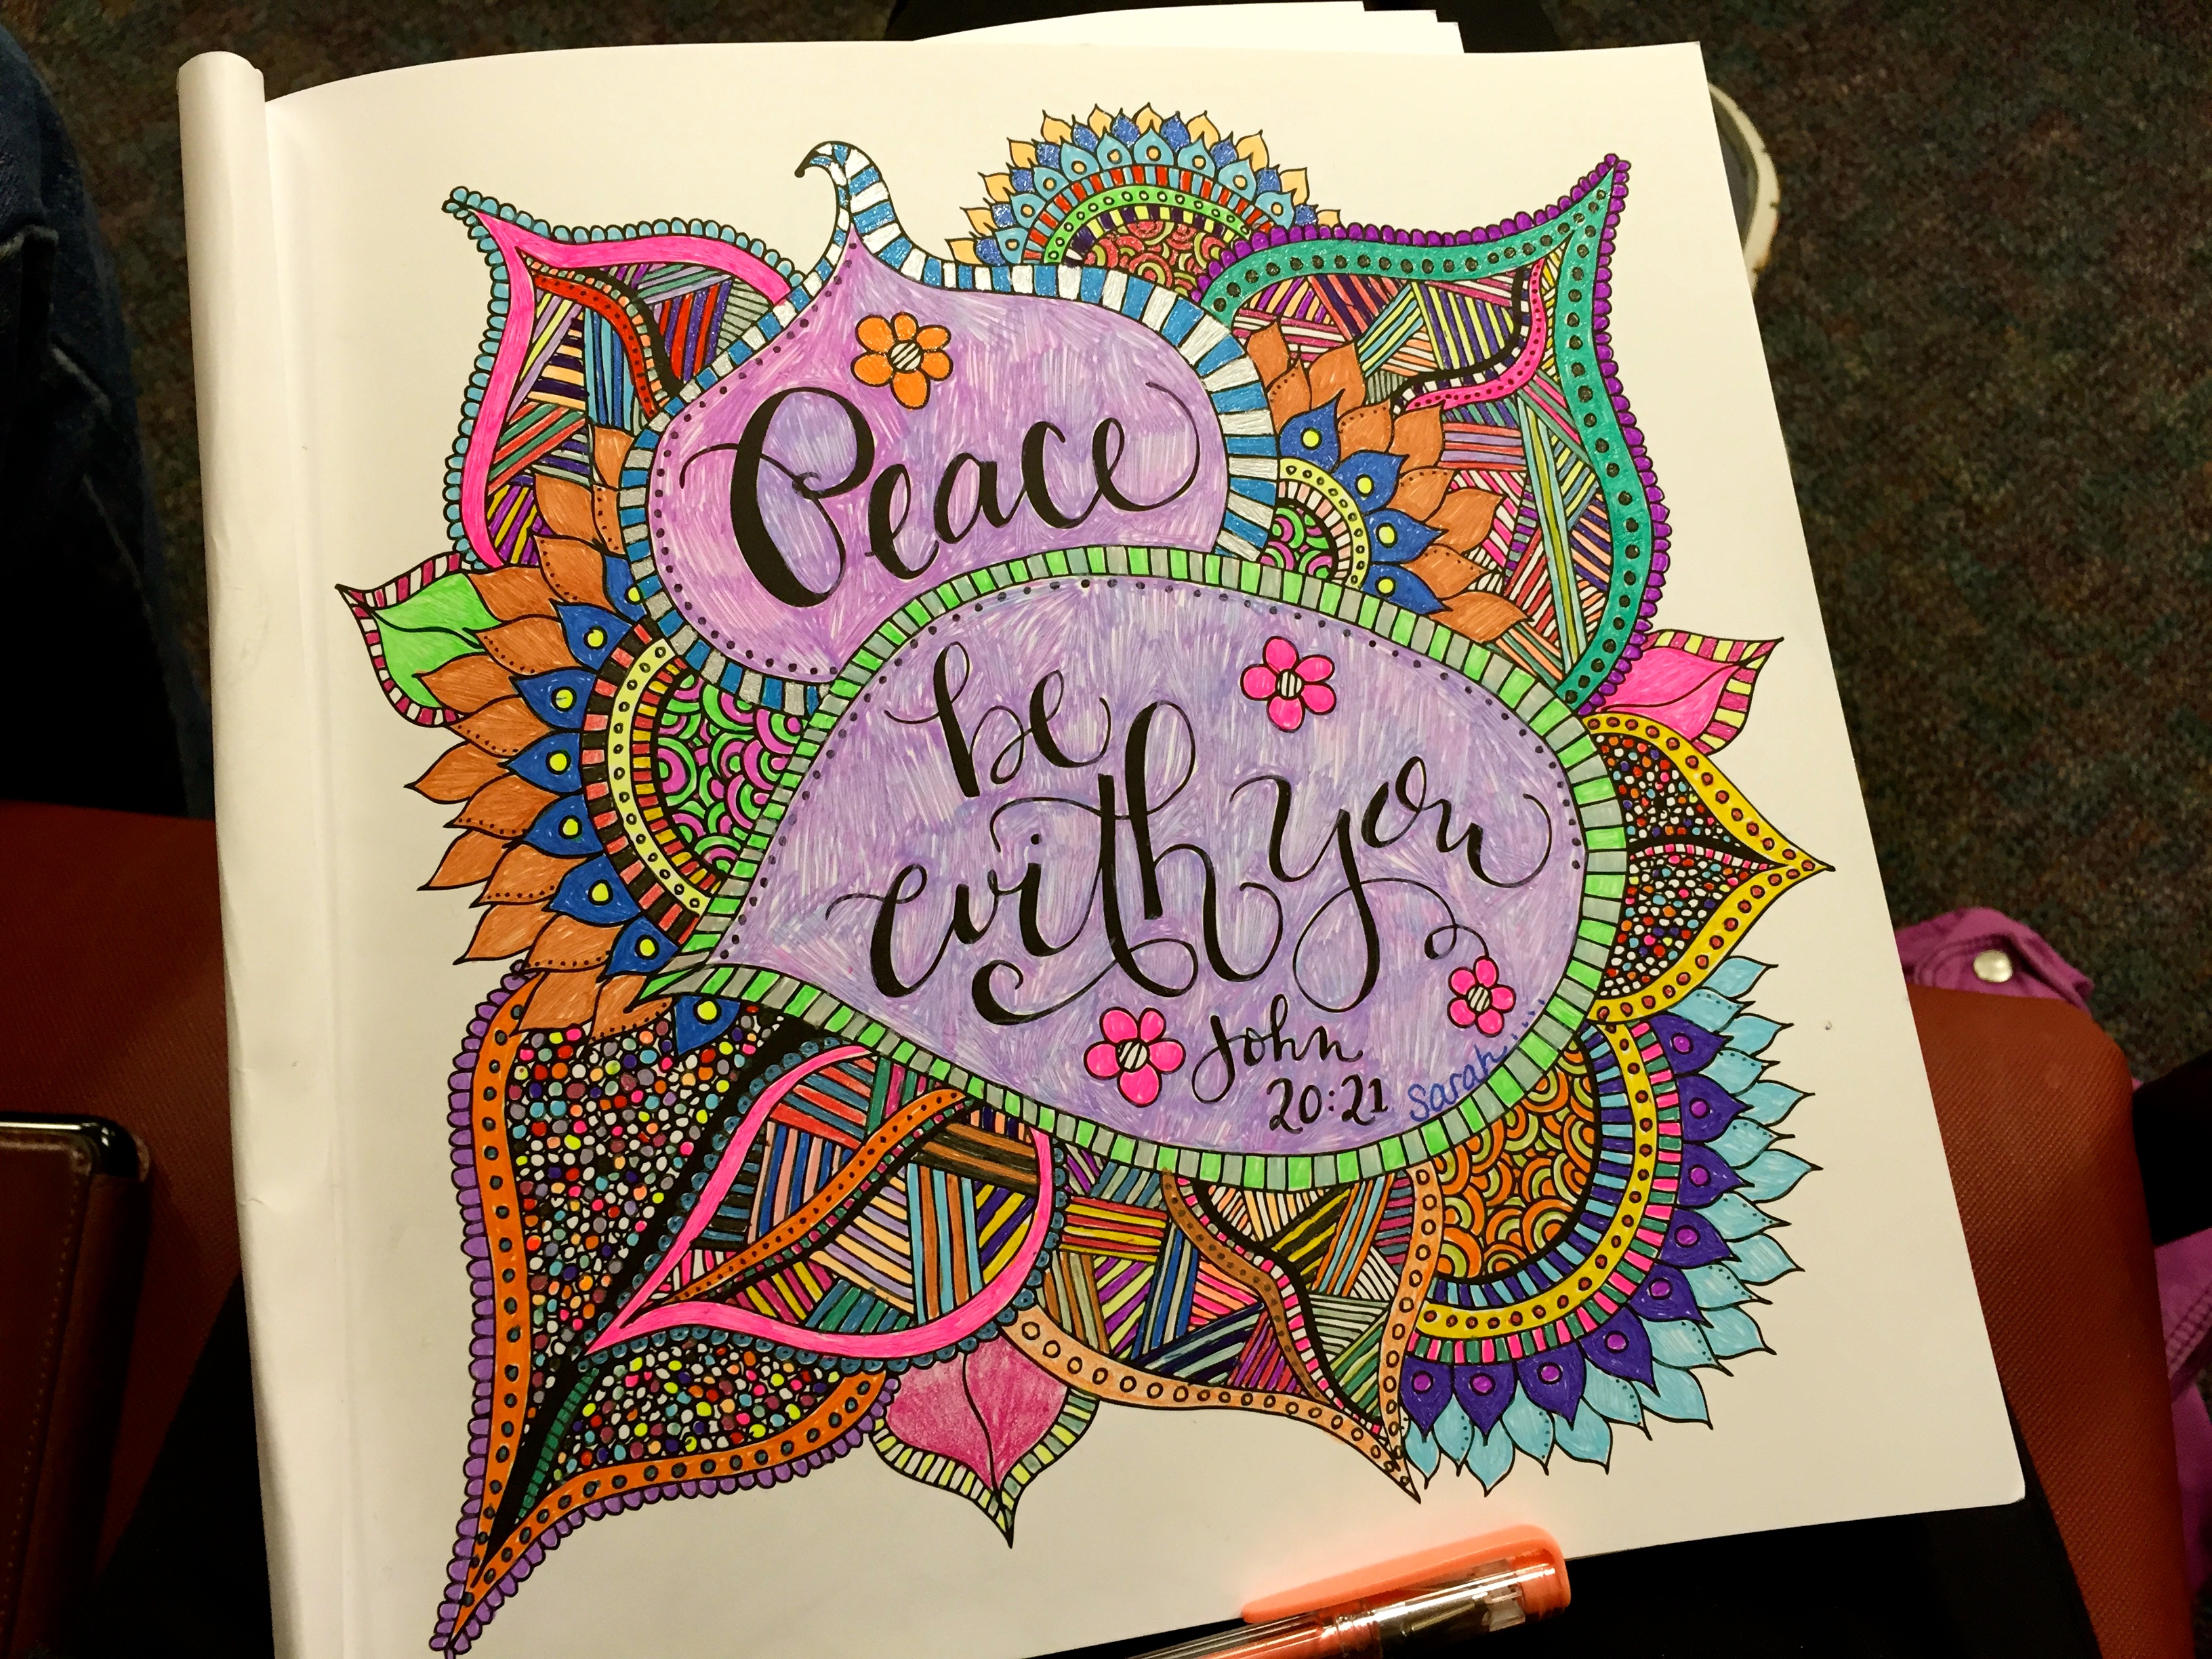 Peace
be
with you
John
20:21 Sarah